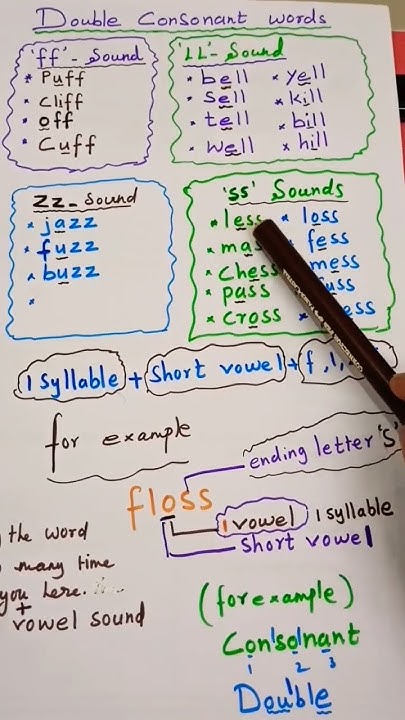 Double Consonant words
'ff' - Sound
* Puff
* Cliff
* off
* Cuff
'LL' - Sound
* bell * yell
* Sell * kill
* tell * bill
* well * hill
Zz - Sound
* jazz
* fuzz
* buzz
*
'SS' Sounds
* less * loss
* fess
* chess mess
* pass
* cross
1 Syllable + Short vowel + f, l,
for example
ending letter 'S'
floss
1 vowel 1 syllable
short vowel
the word
many time
you here.
+
vowel sound
(for example)
Consonant
1 2 3
Double